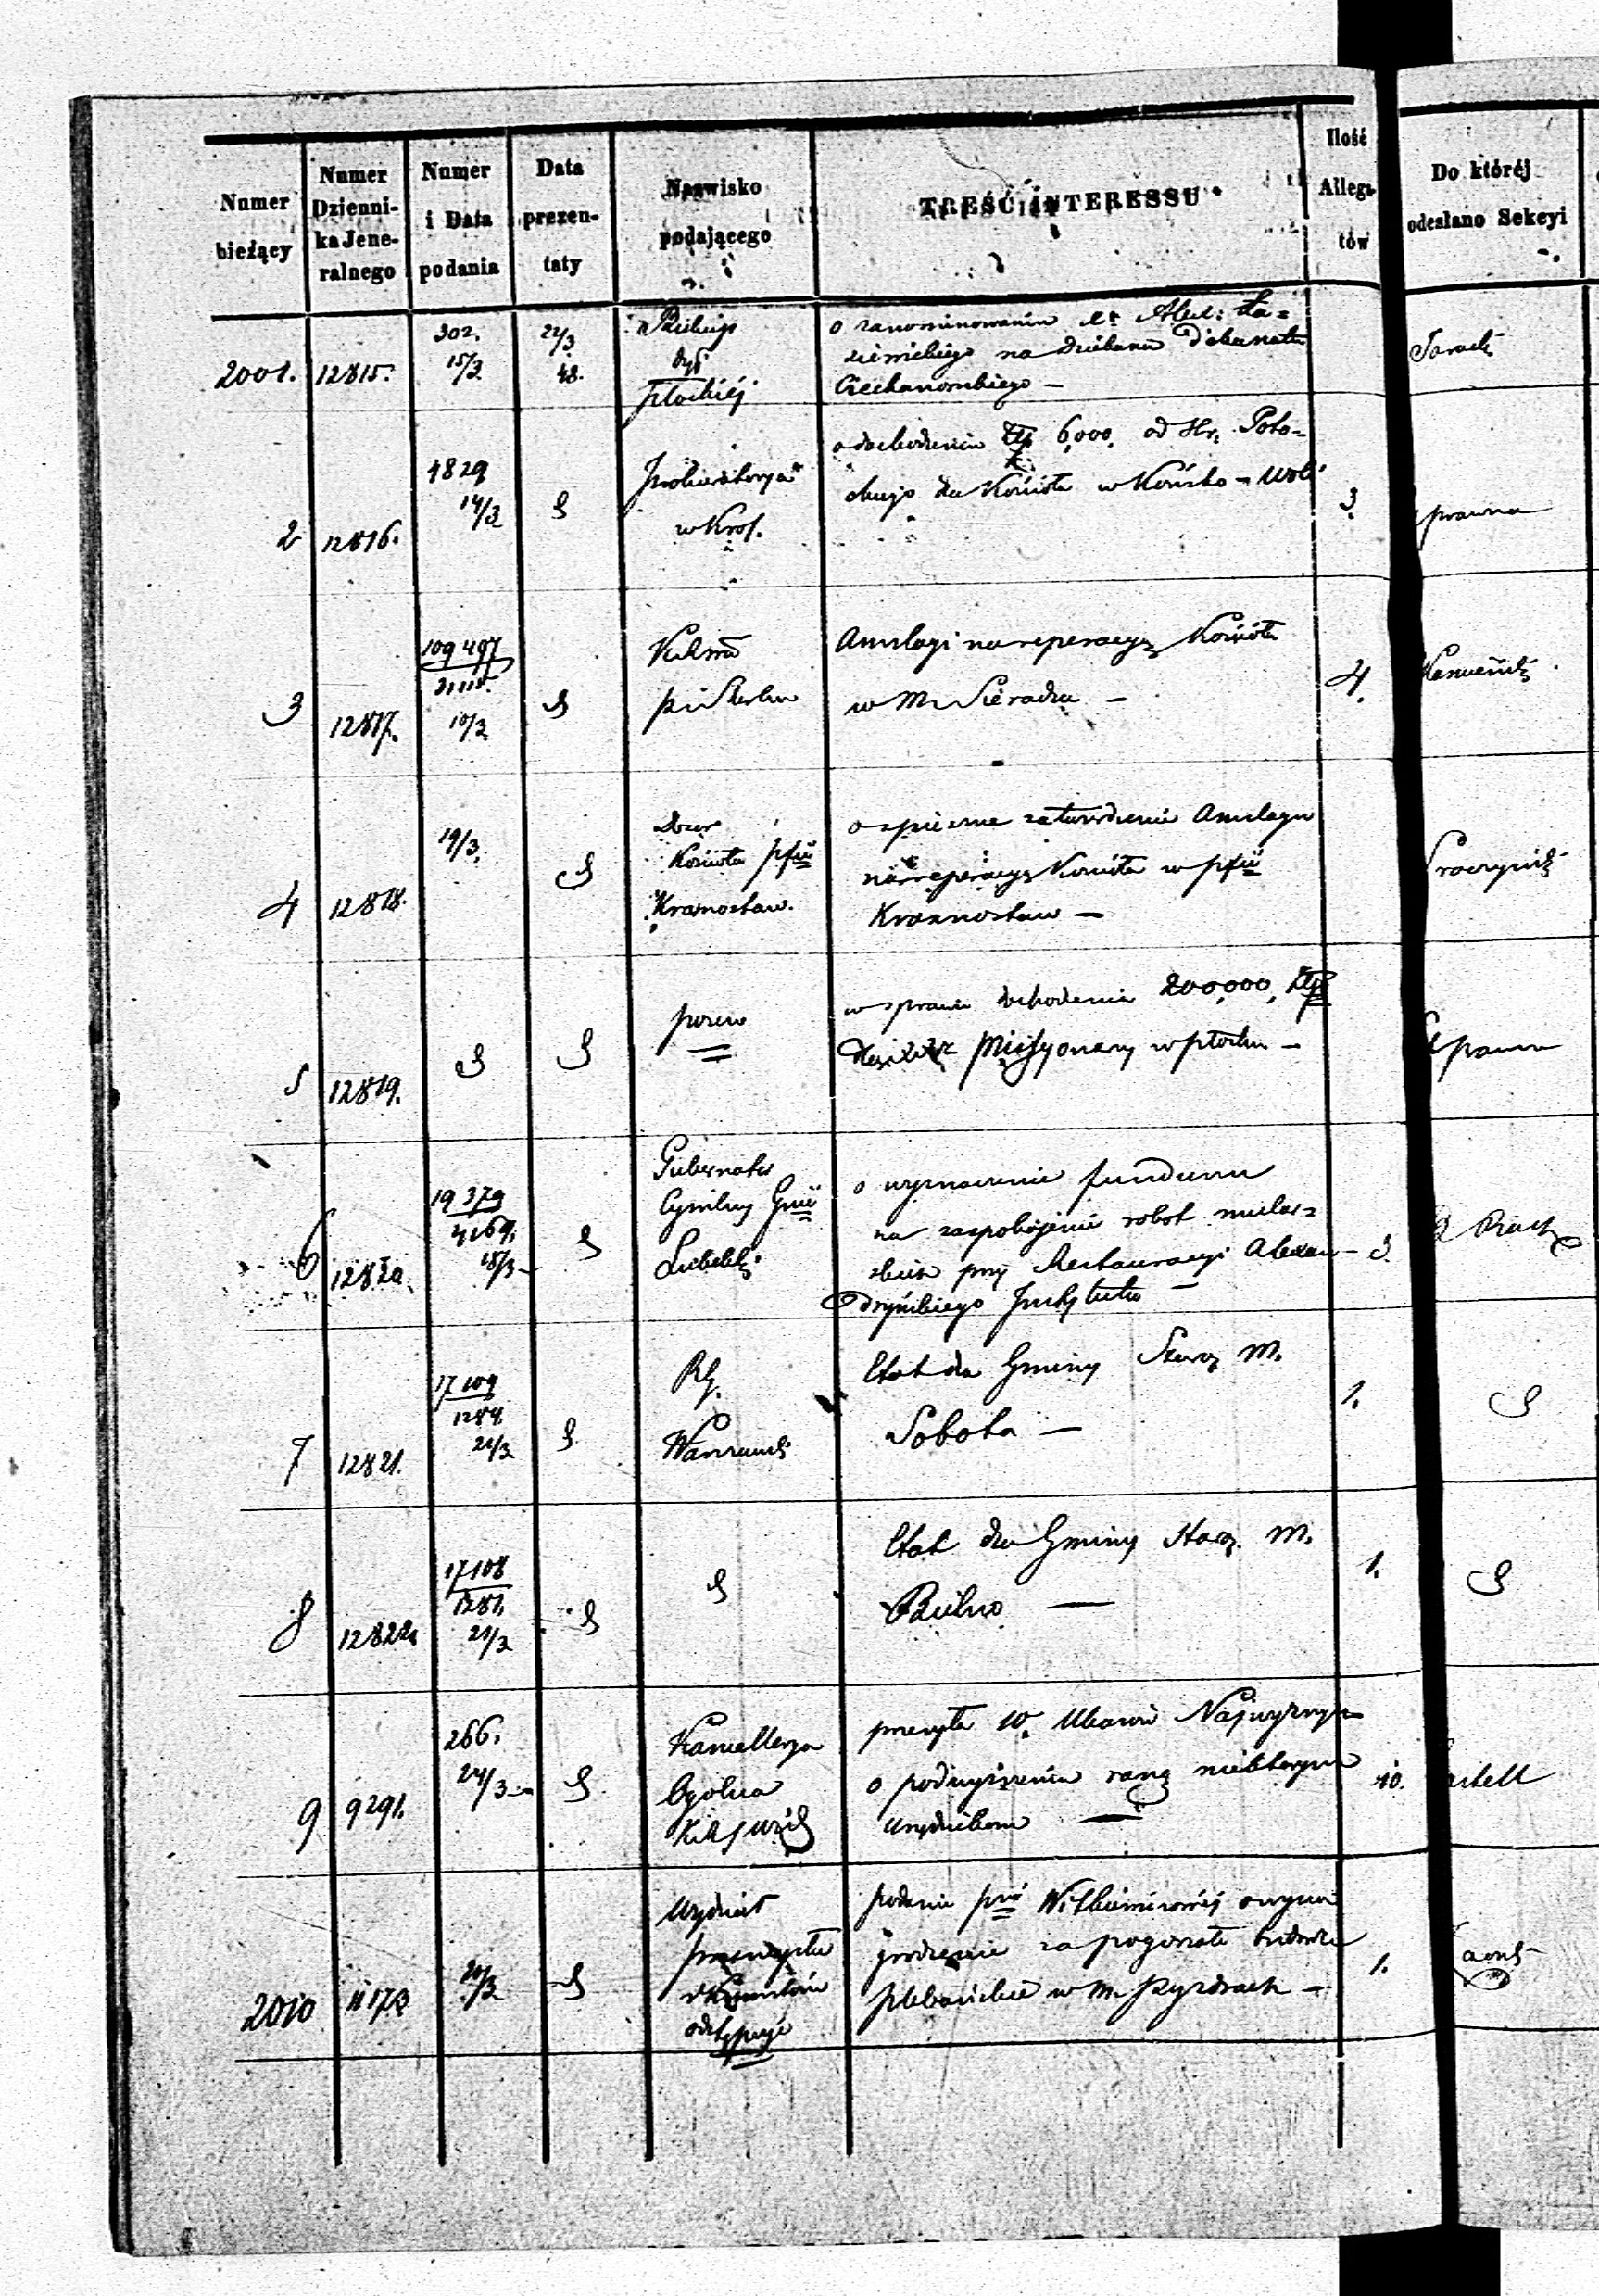 Numer bieżący
Numer Dzienni- ka Jene- ralnego
Numer i Data podania
Data prezen- taty
Nazwisko podającego
TREŚĆ INTERESSU
Ilość Allega- tów
Do któréj odesłano Sekcyi
2001. 12815. 302. 15/3 22/3 48.
Biskup
dyi
płockiéj
o zanominowaniu
na dziekana Dekanatu
Ciechanowskiego —
2 12816. 4829 14/3
Prokuratorya
w Król.
o dochodzeniu Złp 6,000. od Hr. Poto-
ckiego dla Kościoła w Końsko-Woli
3.
prawna
3 12817. 109497 10/3
Anszlagi na reperacyą Kościoła
w M. Sieradzu —
4.
4 12818. 19/3.
Dozór
Kościoła pfii
Krasnostaw.
o spieszne zatwierdzenie Anszlagu
na reperacyą Kościoła w pfii
Krasnostaw —
5 12819.
pozew
w sprawie dochodzenia 200,000, Złp
Missyonarzy w Płocku —
prawna
6 12820. 19379 4269. 18/3
Gubernator
Cywilny Gnii
Lubelski
o wyznaczenie funduszu
na zaspokojenie robot
przy Restauracyi Alexan-
dryńskiego Instytutu —
3.
7 12821. 17109 1284. 21/3
RG.
Warszawski
Etat dla Gminy Staroz. M.
Sobota —
1.
8 12822. 17108 1281. 21/3
Etat dla Gminy Staroz. M.
Bielno —
1.
9 9291. 266. 24/3
Kancellarya
Ogólna
przesyła 10. Ukazów Najwyższych
o podwyższeniu rangą niektórym
urzędnikom —
10.
2010 11173 20/3
Wydział
przemysłu
i Kunsztów
odstępuje
podanie pnii o wyna
grodzenie za pogorzałe budowle
plebańskie w M. Pyzdrach —
1.